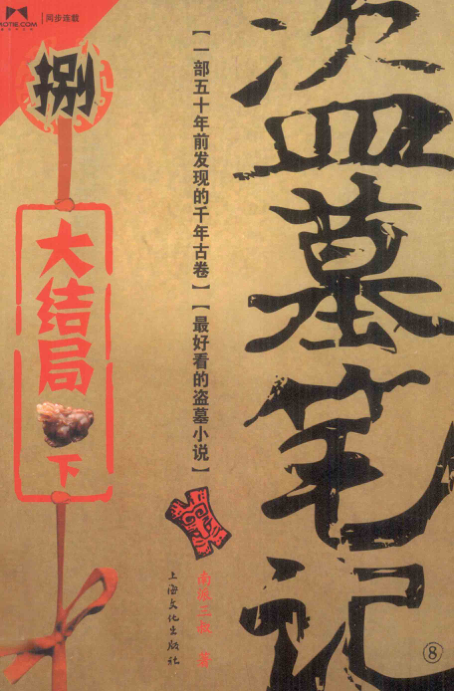 MOTIE.COM
同步连载
捌
大结局
下
【一部五十年前发现的千年古卷】【最好看的盗墓小说】
盗墓笔记
南派三叔 著
上海文化出版社
8